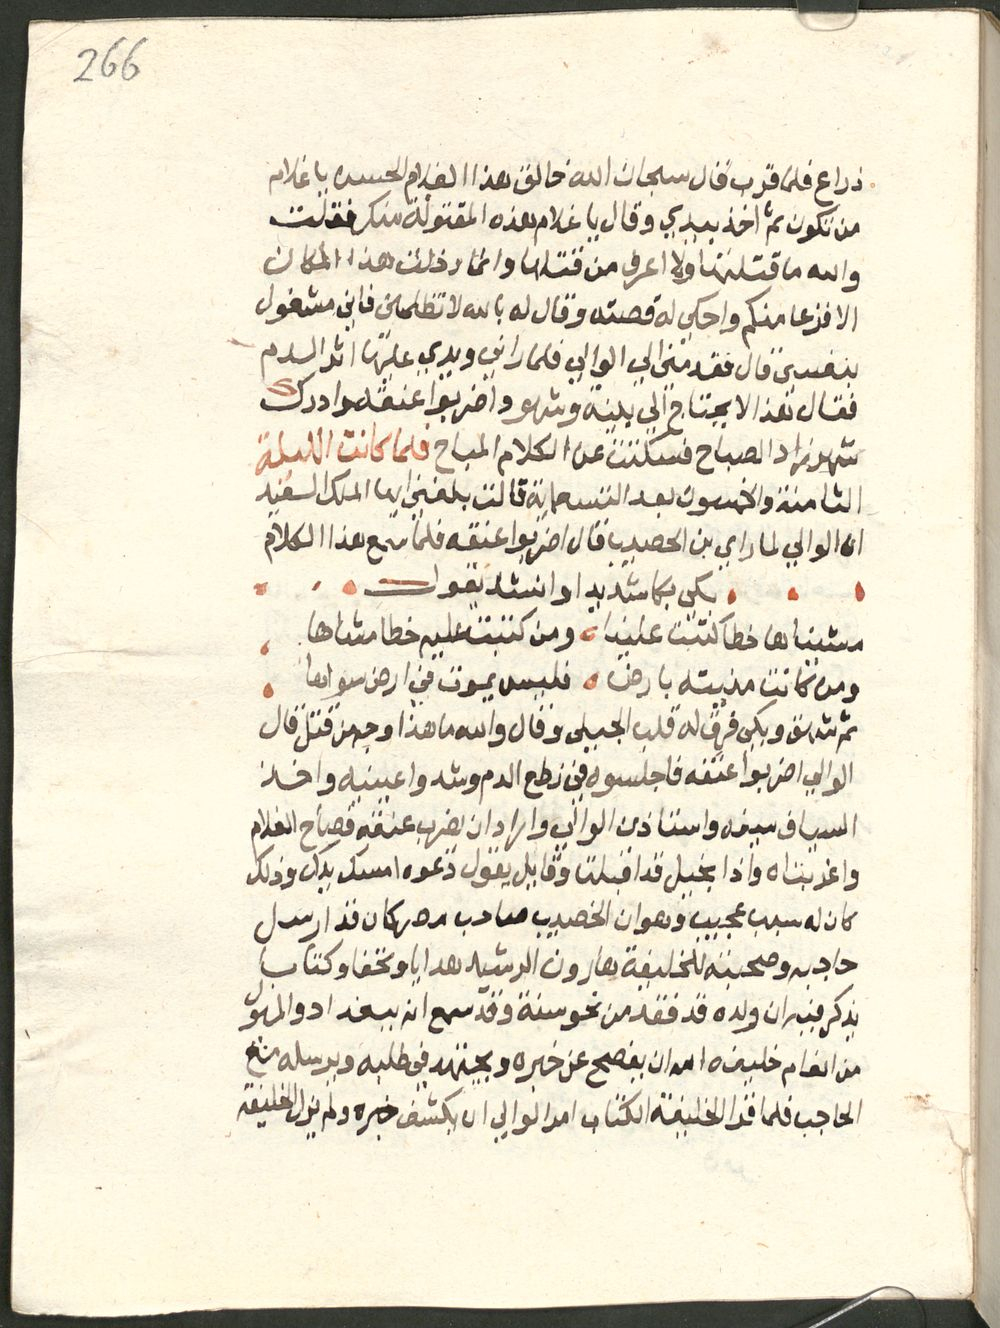 266
ذراع فلما قرب قال سبحان الله خالق هذا الغلام الحسن يا غلام
من تكون ثم اخذ بيدي وقال يا غلام هذه المقتولة منكر فقلت
والله ما قتلتها ولا اعرف من قتلها وانما دخلت هذا المكان
الا فزعا منكم واحكي له قصته وقال له بالله لا تظلمني فاني مشغول
بنفسي قال فقدمني الي الوالي فلما راني ويدي عليها اثر الدم
فقال هذا لا يحتاج الي بينة وشهود اضربوا عنقه وادرك
شهرزاد الصباح فسكتت عن الكلام المباح فلما كانت الليلة
الثامنة والخمسون بعد التسعماية قالت بلغني ايها الملك السعيد
ان الوالي لما راي بن الخصيب قال اضربوا عنقه فلما سمع هذا الكلام
بكي بكا شديدا وانشد يقول
مشيناها خطا كتبت علينا ومن كتبت عليه خطا مشاها
ومن كانت منيته بارض فليس يموت في ارض سواها
ثم شهق وبكي فرق له قلب الجبيلي وقال والله ما هذا وجه من قتل قال
الوالي اضربوا عنقه فاجلسوه في نطع الدم وشدوا عينيه واخذ
السياف سيفه واستاذن الوالي واراد ان يضرب عنقه فصاح الغلام
واغربتاه واذا بخيل قد اقبلت وقايل يقول دعوه امسك يدك وذلك
كان له سبب عجيب وهو ان الخصيب صاحب مصر كان قد ارسل
حاجبه وصحبته للخليفة هارون الرشيد هدايا وتحفا وكتاب
يذكر فيه ان ولده قد فقد من نحو سنة وقد سمع انه ببغداد والمامول
من انعام خليفة الله ان يفصح عن خبره ويجتهد في طلبه ويرسله مع
الحاجب فلما قرا الخليفة الكتاب امر الوالي ان يكشف خبره ولم يزل الخليفة